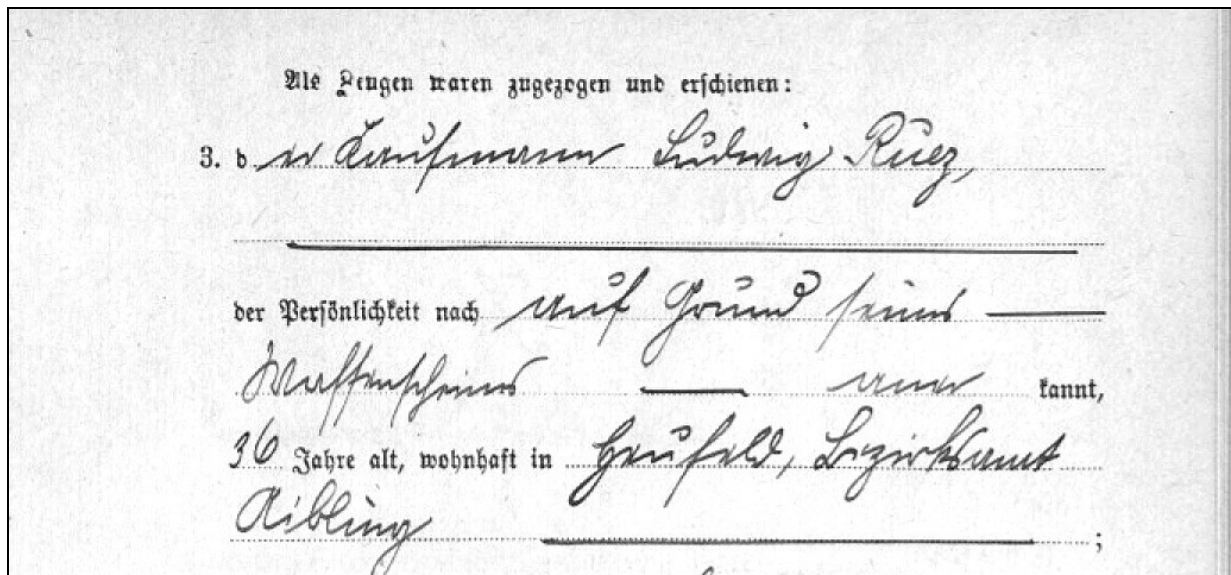 Als Zeugen waren zugezogen und erschienen:
3. der Kaufmann Ludwig Ruez,
der Persönlichkeit nach auf Grund seines
Waffenscheines aner kannt,
36 Jahre alt, wohnhaft in Heufeld, Bezirksamt
Aibling ;